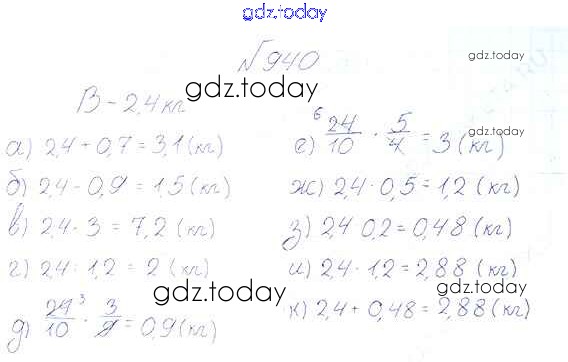 gdz.today
№940
gdz.today
В - 2,4 кг
gdz.today
а) 2,4 + 0,7 = 3,1 (кг)
б) 2,4 - 0,9 = 1,5 (кг)
в) 2,4 · 3 = 7,2 (кг)
г) 2,4 : 1,2 = 2 (кг)
д) 24/10 ³ · 3/8 = 0,9 (кг)
gdz.today
е) ⁶ 24/10 · 5/4 = 3 (кг)
ж) 2,4 · 0,5 = 1,2 (кг)
з) 2,4 0,2 = 0,48 (кг)
и) 2,4 · 1,2 = 2,88 (кг)
к) 2,4 + 0,48 = 2,88 (кг)
gdz.today
gdz.today
gdz.today